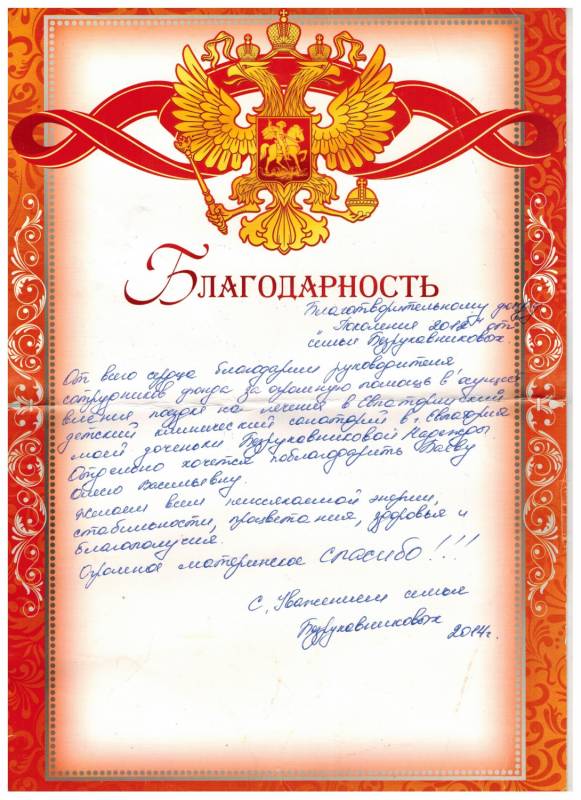 Благодарность
Благотворительному фонду
"Поколения 2015" от
семьи Безрукавниковых.
От всего сердца благодарим руководителя
сотрудников фонда за огромную помощь в осущест
влении поездке на лечение в Евпаторийский
детский клинический санаторий в г. Евпатория
моей доченьки Безрукавниковой Надежды
Отдельно хочется поблагодарить Баеву
Олесю Васильевну.
Желаем всем неиссякаемой энергии,
стабильности, процветания, здоровья и
благополучия.
Огромное материнское спасибо!!!
С, Уважением семья
Безрукавниковых
2014г.